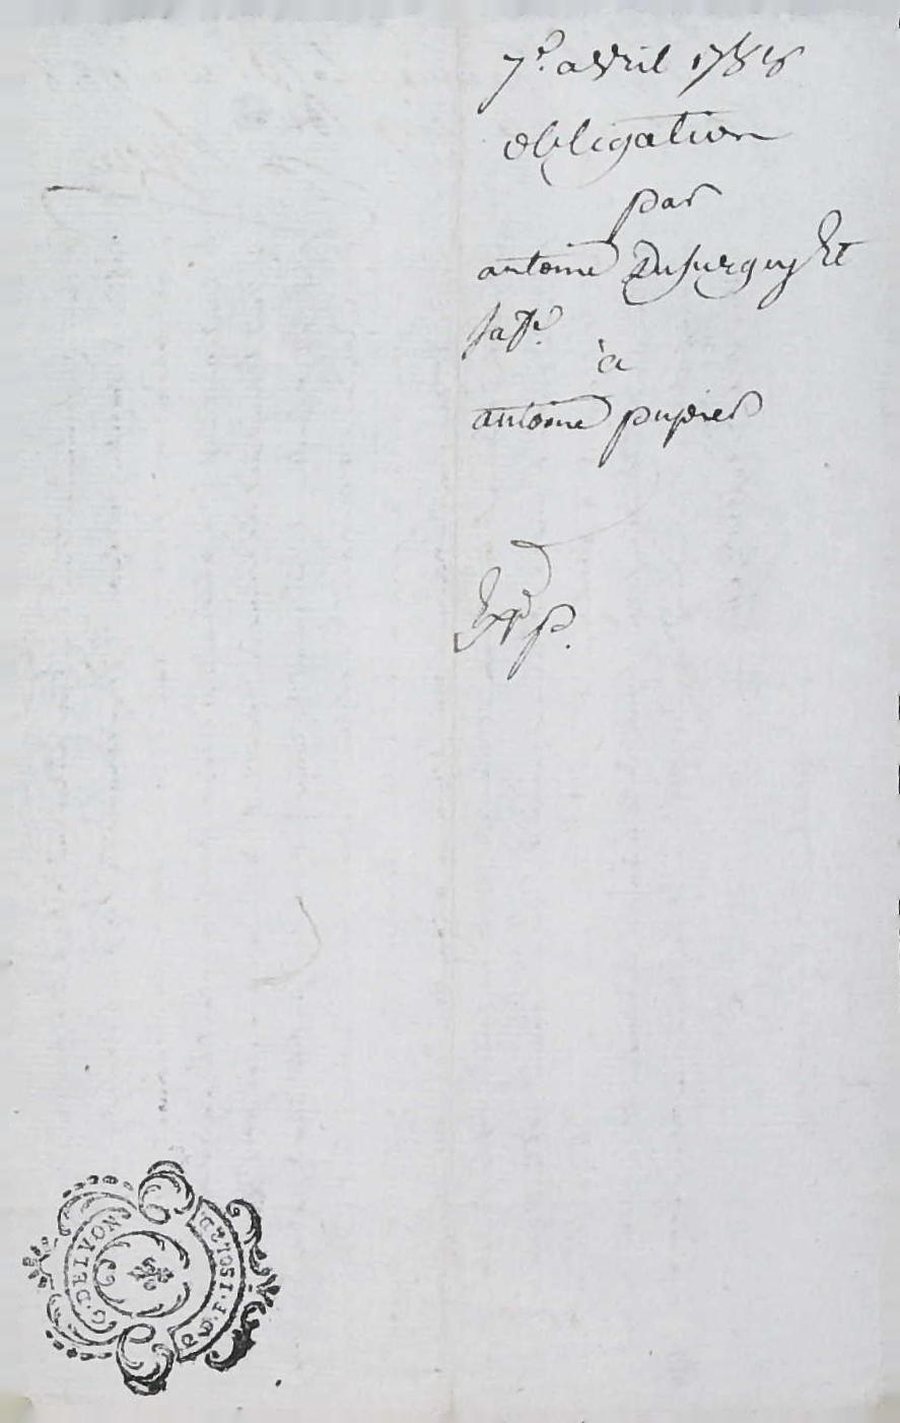 7e. avril 1788
obligation
par
antoine Dusurguy Et
sa fe.
à
antoine pupier
Exp.
G. DE LYON